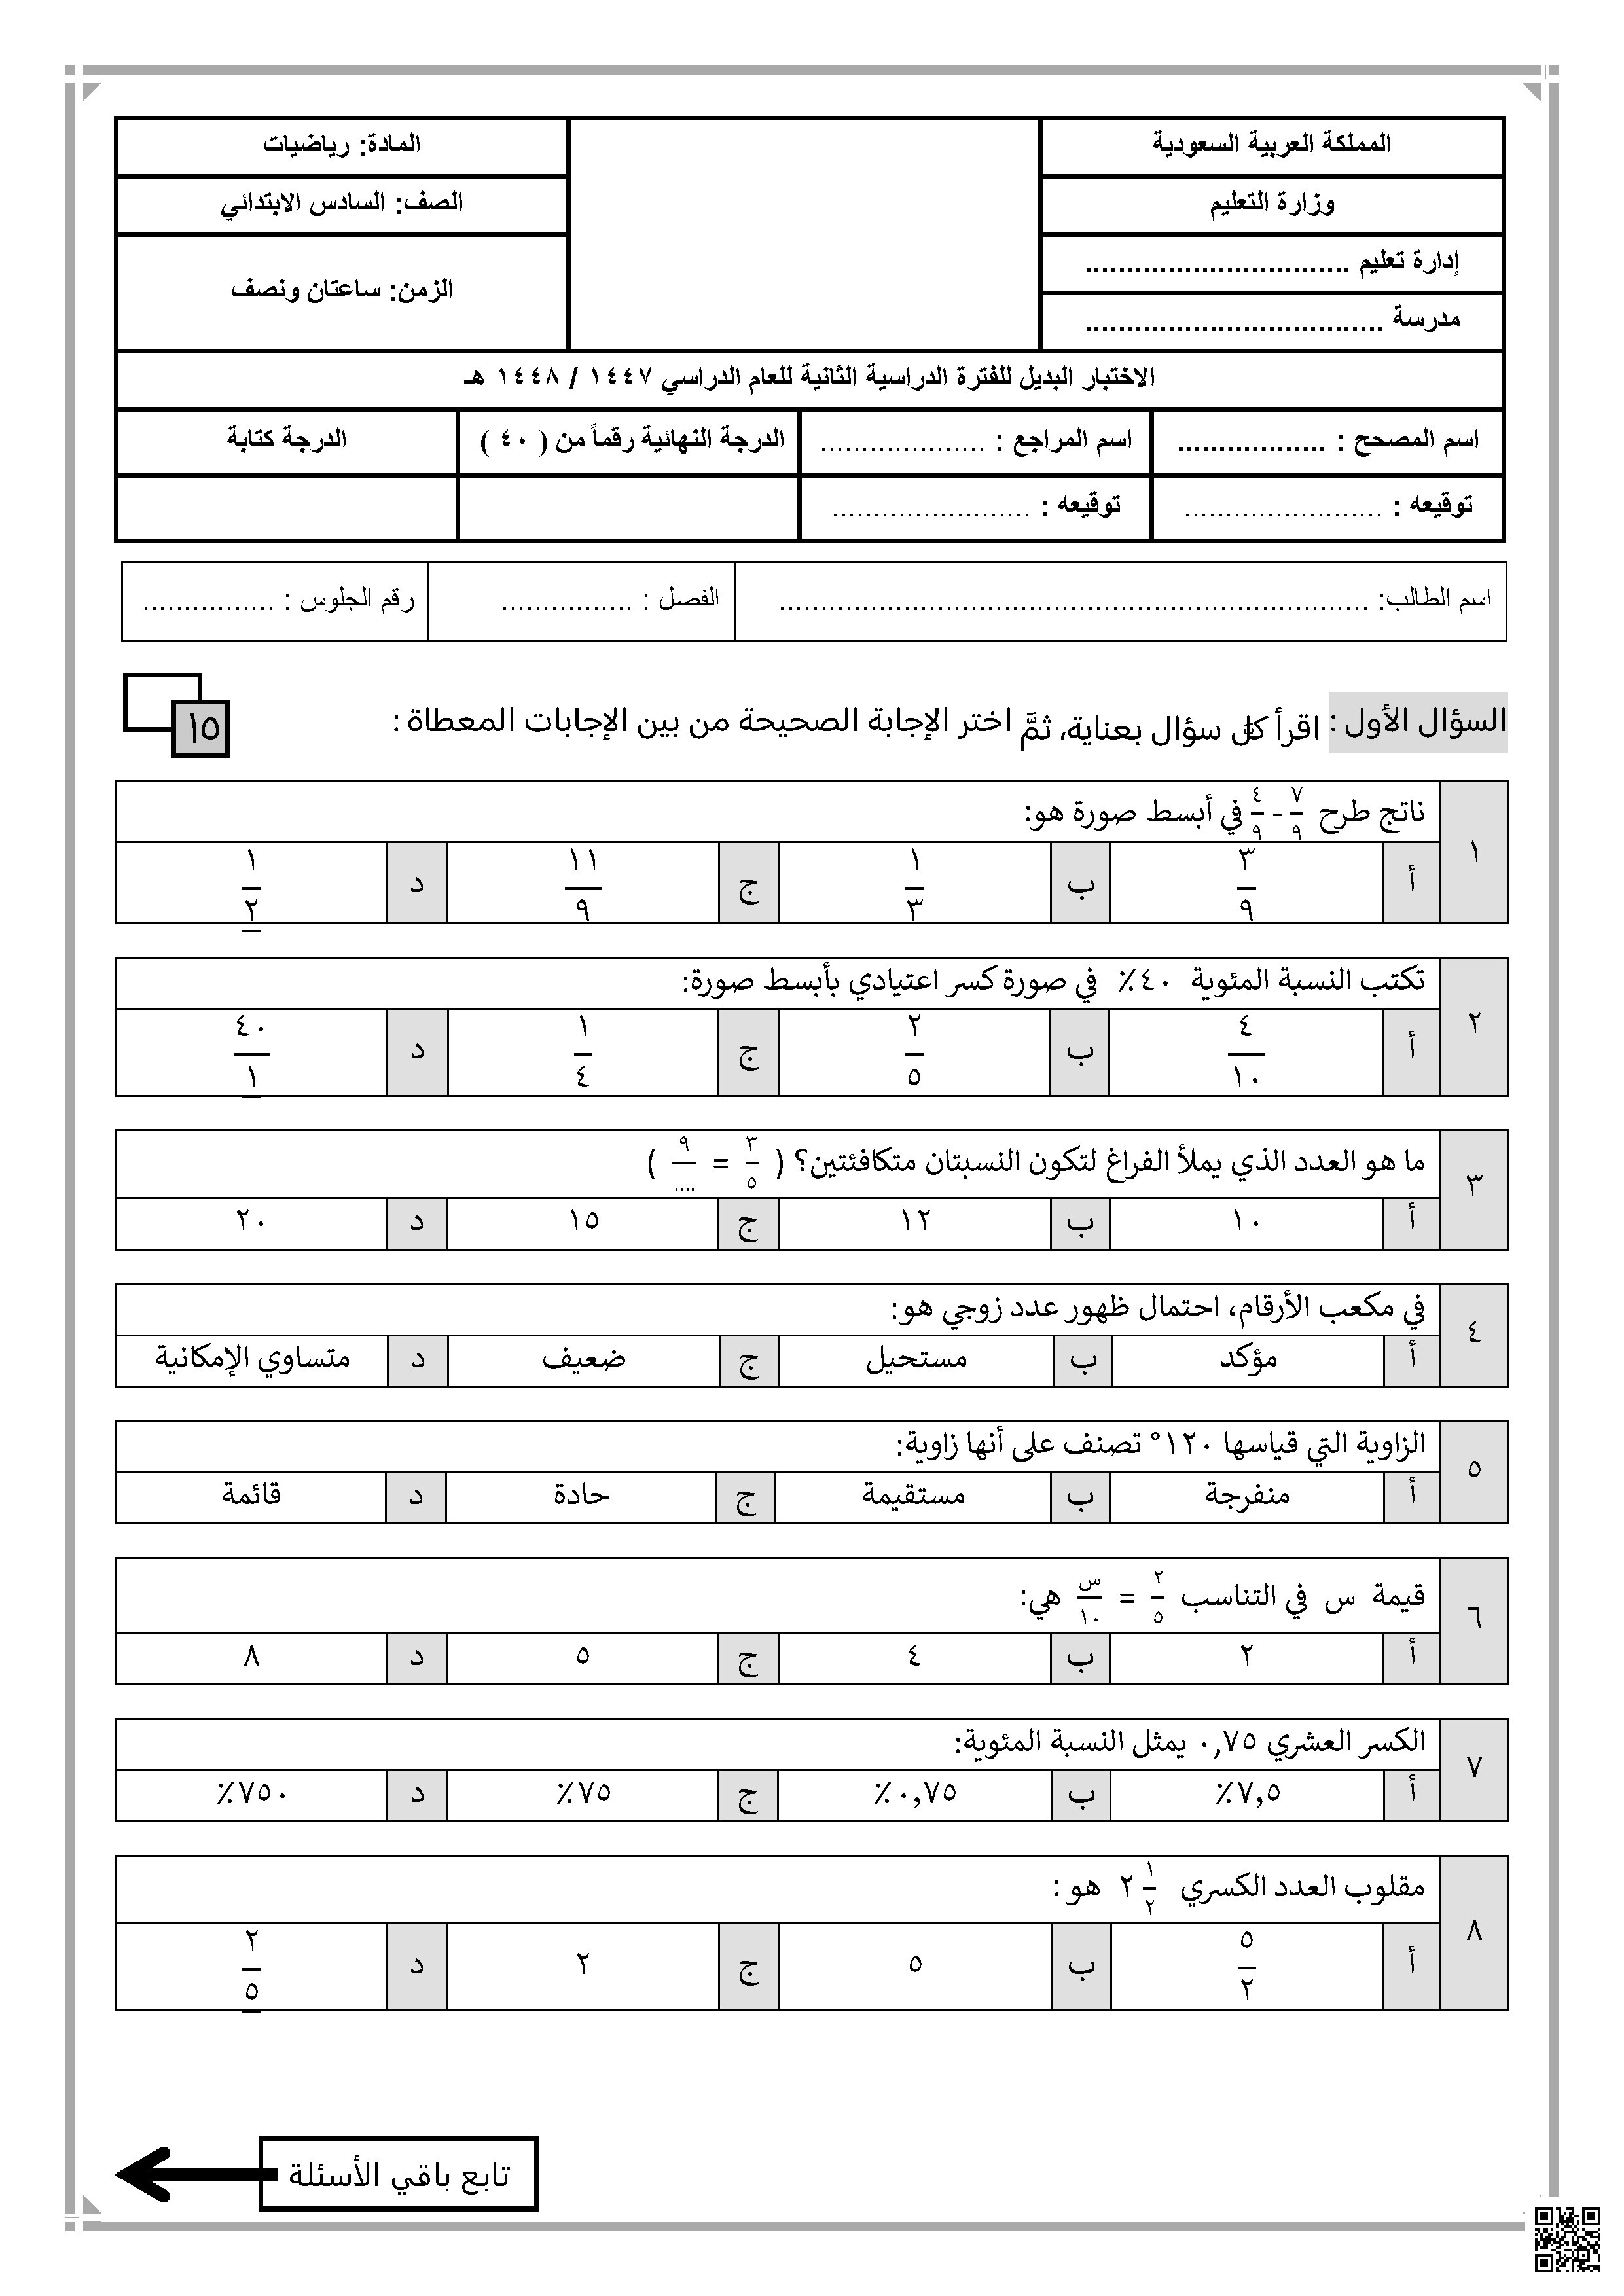 المملكة العربية السعودية
المادة: رياضيات
وزارة التعليم
الصف: السادس الابتدائي
إدارة تعليم ................................
الزمن: ساعتان ونصف
مدرسة ....................................
الاختبار البديل للفترة الدراسية الثانية للعام الدراسي ١٤٤٧ / ١٤٤٨ هـ
اسم المصحح : .................. اسم المراجع : .................... الدرجة النهائية رقماً من ( ٤٠ ) الدرجة كتابة
توقيعه : ........................ توقيعه : ........................
اسم الطالب: ....................................................................... الفصل : ................ رقم الجلوس : ................
السؤال الأول : اقرأ كل سؤال بعناية، ثمَّ اختر الإجابة الصحيحة من بين الإجابات المعطاة :
١٥
١ ناتج طرح ٧/٩ - ٤/٩ في أبسط صورة هو:
أ ٣/٩ ب ١/٣ ج ١١/٩ د ١/٢
٢ تكتب النسبة المئوية ٤٠٪ في صورة كسر اعتيادي بأبسط صورة:
أ ٤/١٠ ب ٢/٥ ج ١/٤ د ٤٠/١
٣ ما هو العدد الذي يملأ الفراغ لتكون النسبتان متكافئتين؟ ( ٣/٥ = ٩/.... )
أ ١٠ ب ١٢ ج ١٥ د ٢٠
٤ في مكعب الأرقام، احتمال ظهور عدد زوجي هو:
أ مؤكد ب مستحيل ج ضعيف د متساوي الإمكانية
٥ الزاوية التي قياسها ١٢٠° تصنف على أنها زاوية:
أ منفرجة ب مستقيمة ج حادة د قائمة
٦ قيمة س في التناسب ٢/٥ = س/١٠ هي:
أ ٢ ب ٤ ج ٥ د ٨
٧ الكسر العشري ٠,٧٥ يمثل النسبة المئوية:
أ ٧,٥٪ ب ٠,٧٥٪ ج ٧٥٪ د ٧٥٠٪
٨ مقلوب العدد الكسري ٢ ١/٢ هو :
أ ٥/٢ ب ٥ ج ٢ د ٢/٥
تابع باقي الأسئلة